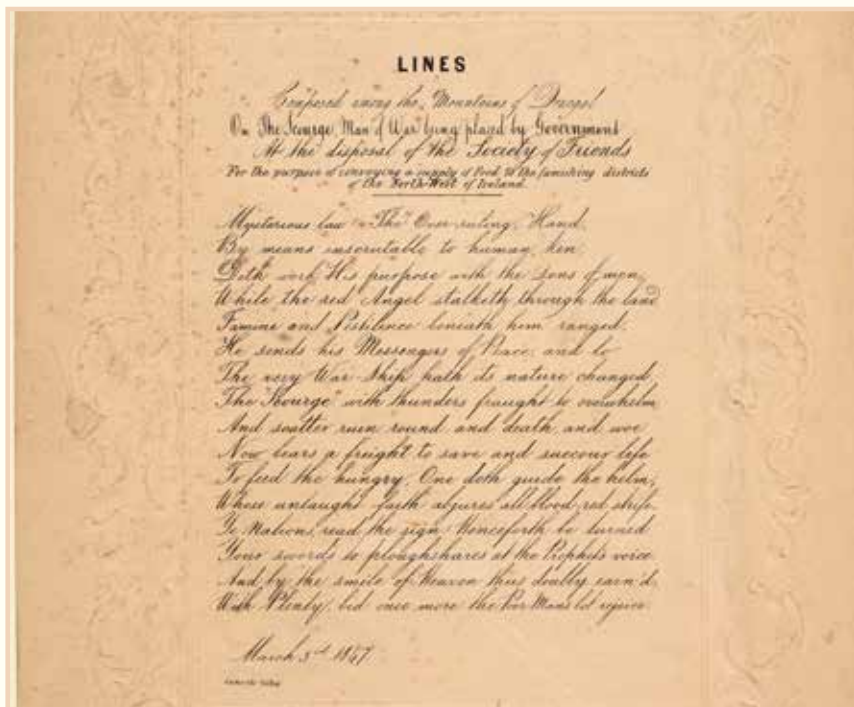 LINES
Composed among the Mountains of Donegal
On The Scourge, Man of War being placed by Government
At the disposal of the Society of Friends
For the purpose of conveying a supply of Food to the famishing districts
of the North-West of Ireland.
Mysterious law The Over-ruling Hand
By means inscrutable to human ken
Doth work His purpose with the sons of men,
While the red Angel stalketh through the land
Famine and Pestilence beneath him ranged.
He sends his Messengers of Peace, and lo
The very War Ship hath its nature changed
The "Scourge" with thunders fraught to overwhelm
And scatter ruin round and death and woe
Now bears a freight to save and succour life
To feed the hungry. One doth guide the helm,
Whose untaught faith abjures all blood red strife.
Ye Nations, read the sign. Henceforth be turned
Your swords to ploughshares at the Prophet's voice
And by the smile of Heaven thus doubly earn'd,
With Plenty, bid once more the Poor Mans lot rejoice.
March 3rd 1847